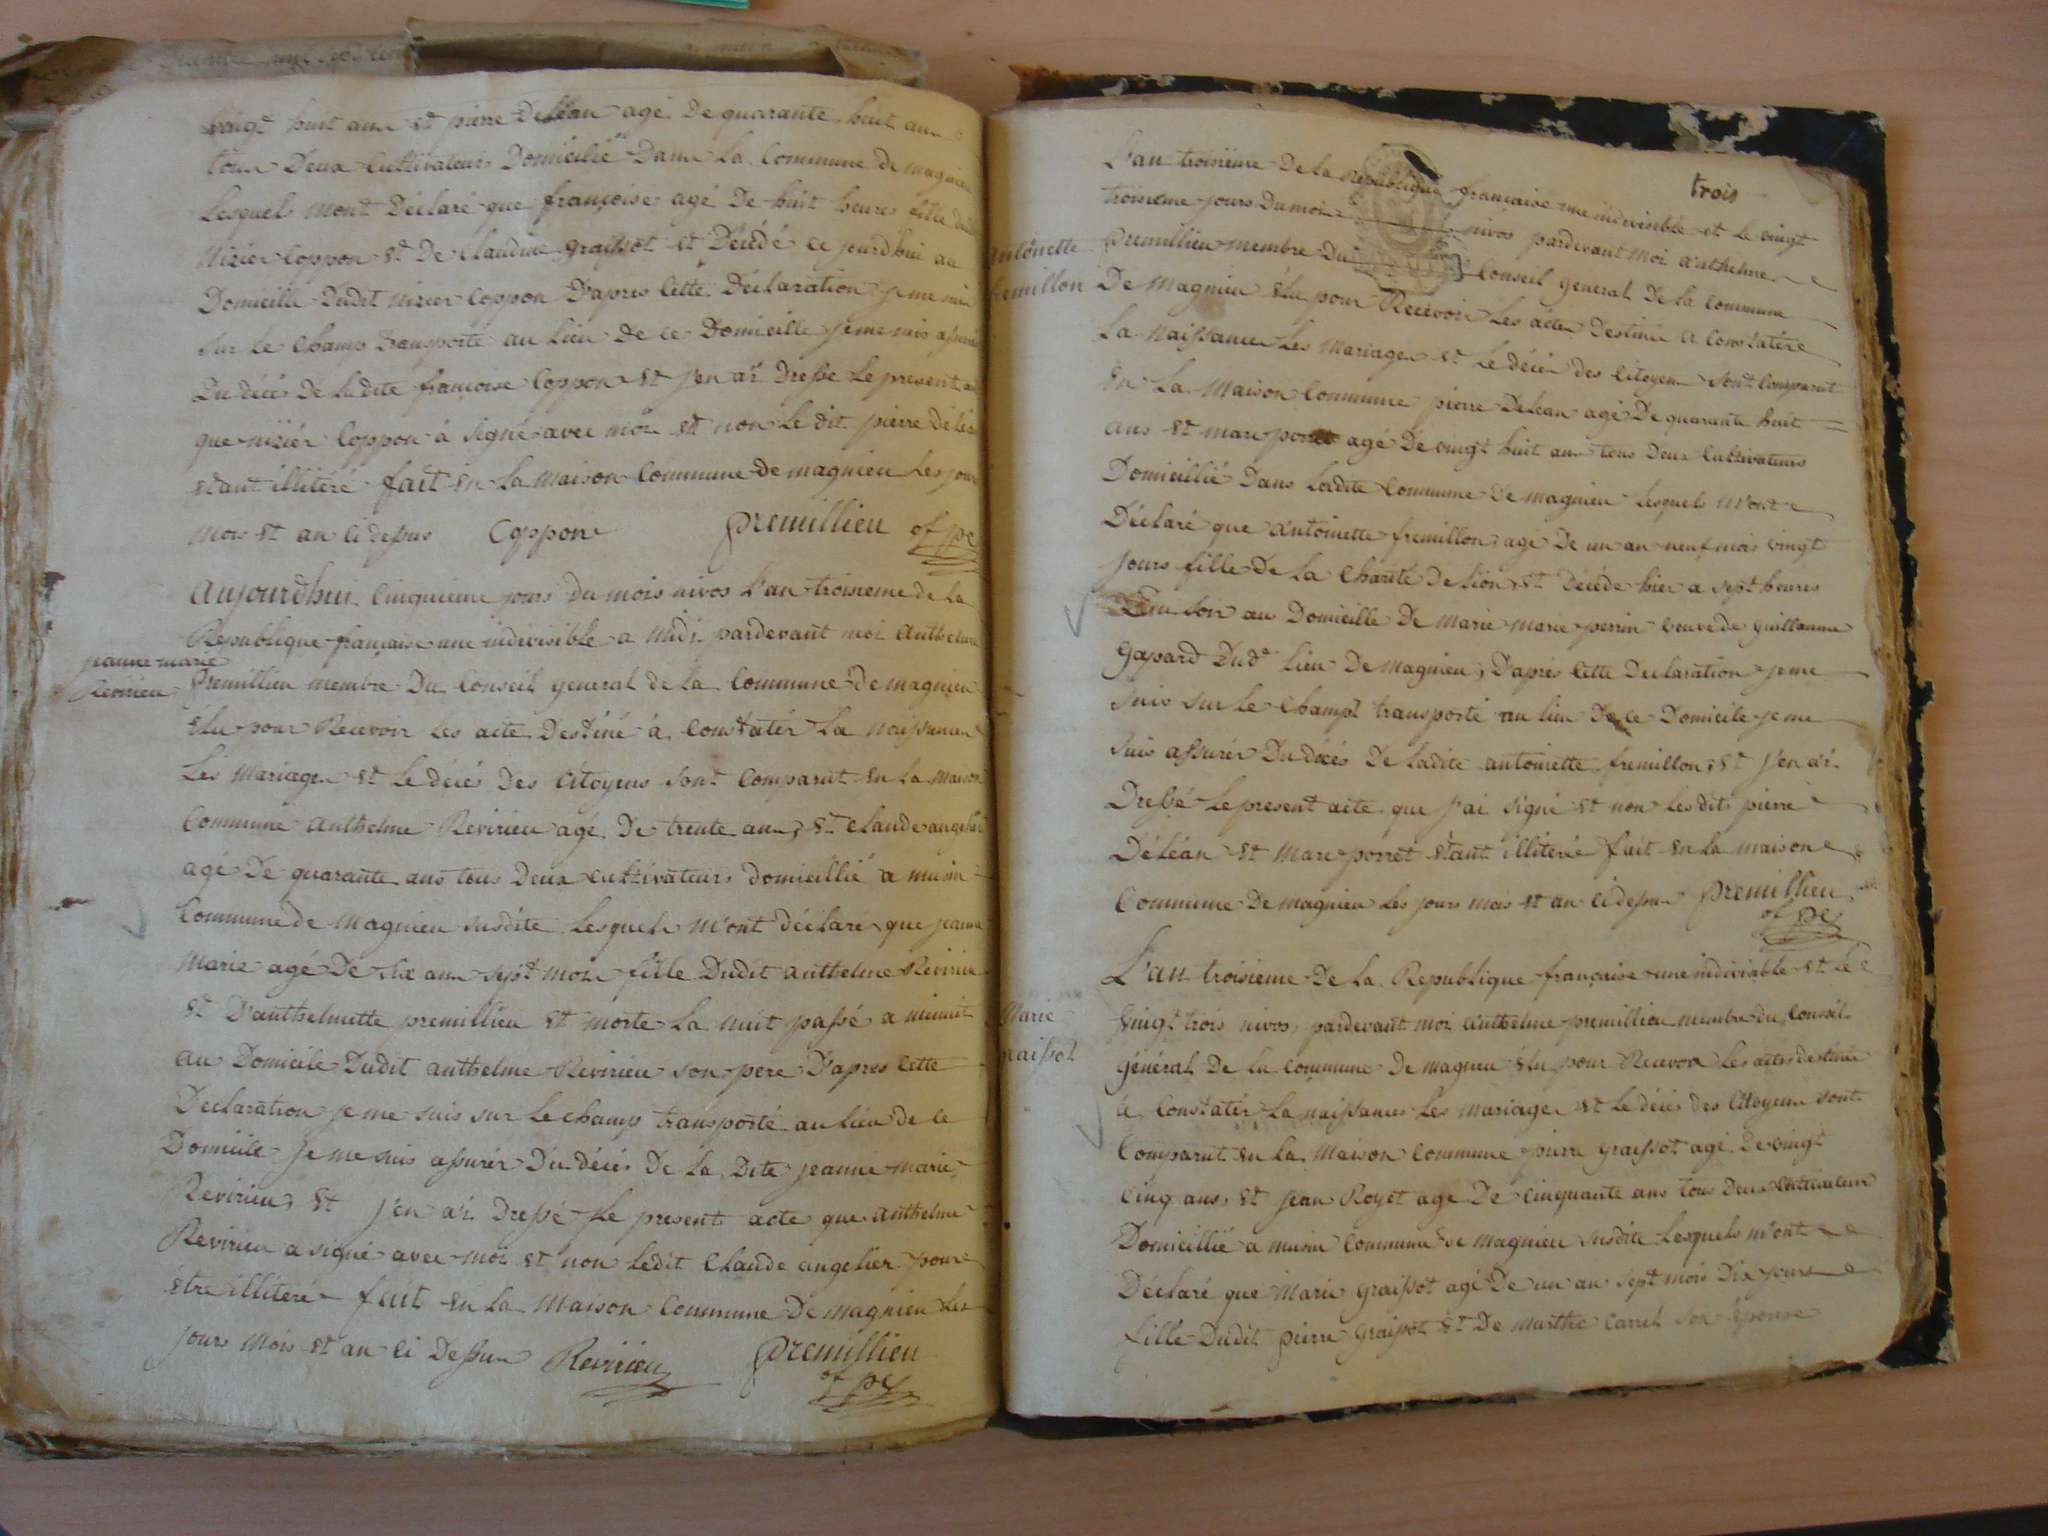 vingt huit ans et pierre Deléan agé De quarante huit ans
tous Deux Cultivateurs Domicilié Dans La Commune de magnieu
Lesquels mont Déclaré que françoise agé De huit heures fille dudit
Nizier Coppon et De Claudine graissot et Décédé ce jourdhui au
Domicille Dudit nizier Coppon D'apres Cette Déclaration je me suis
sur le Champ transporté au lieu de ce Domicille je me suis assuré
Du décés De ladite françoise Coppon et J'en ai Dressé Le present acte
que nizier Coppon à signé avec moi et non le dit pierre deléan
étant illitéré fait en la maison Commune de magnieu les jour
mois et an ci dessus Coppon premillieu of pc
Aujourdhui Cinquieme jours Du mois nivos l'an troisieme de la
Republique française une indivisible a Midi pardevant moi Anthelme
jeanne marie
Revirieu
premillieu membre Du Conseil general de la Commune de magnieu
élu pour Recevoir Les acte Destiné à Constatér La naissances
Les Mariages et Le décés Des Citoyens sont Comparut en La maison
Commune anthelme Revirieu agé De trente ans, et claude angelier
agé De quarante ans tous Deux cultivateurs domicillié a musin
Commune de magnieu susdite Lesquels m'ont déclaré que jeanne
Marie agé De six ans sept mois fille Dudit anthelme Revirieu
et D'anthelmette premillieu et morte La nuit passé a minuit
au Domicile Dudit anthelme Revirieu son pere D'apres Cette
Declaration je me suis sur Le champ transporté au lieu de ce
Domicile je me suis assurér Du décés De La Dite jeanne marie
Revirieu, et J'en ai Dressé Le present acte que anthelme
Revirieu a signé avec moi et non Ledit Claude angelier pour
être illitéré fait en La Maison Commune De magnieu Les
jours Mois et an ci Dessus Revirieu premillieu
of pc
trois
L'an troisième De La Republique française une indivisible et Le vingt
troisieme jours Du mois nivos pardevant Moi anthelme
antoinette
fremillon
premillieu membre Du Conseil general De la Commune
De Magnieu élu pour Recevoir Les actes Destiné a Constatére
La Naissances Les Mariages et Le décés des Citoyens sont Comparut
En La Maison Commune pierre Deléan agé De quarante huit
ans et marc porret agé De vingt huit ans tous Deux Cultivateurs
Domicillié Dans Ladite Commune de magnieu Lesquels M'ont
Déclaré que antoinette fremillon agé De un an neuf mois vingt
jours fille De La Charité De lion, et Décéde hier a sept heures
Du soir au Domicille De Marie Marie perrin veuve de guillaume
Gaspard Dud. lieu De Magnieu, D'aprés Cette Declaration je me
suis sur Le Champt transporté au lieu De ce Domicile je me
suis assurér Du décés De ladite antoinette fremillon, et J'en ai
Dressé Le present acte que J'ai signé et non Les dits pierre
Deléan et Marc porret étant illiteré fait en la maison
Commune De magnieu Les jours mois et an ci dessus premillieu
of pc
L'an troisieme De La Republique française une indivisble et Le
Marie
graissot
Vingt trois nivos, pardevant moi anthelme premillieu membre du Conseil
général De la Commune De magnieu élu pour Recevoir Les actes destiné
a Constatér La naissances Les Mariages et Le décés des Citoyens sont
Comparut en La Maison Commune pierre graissot agé De vingt
Cinq ans, et jean Royet agé De Cinquante ans tous Deux Cultivateurs
Domicillié a musin Commune de magnieu susdite Lesquels m'ont
Déclaré que Marie graissot agé De un an sept mois Dix jours
fille Dudit pierre graissot et De Marthe Carrel son épouse